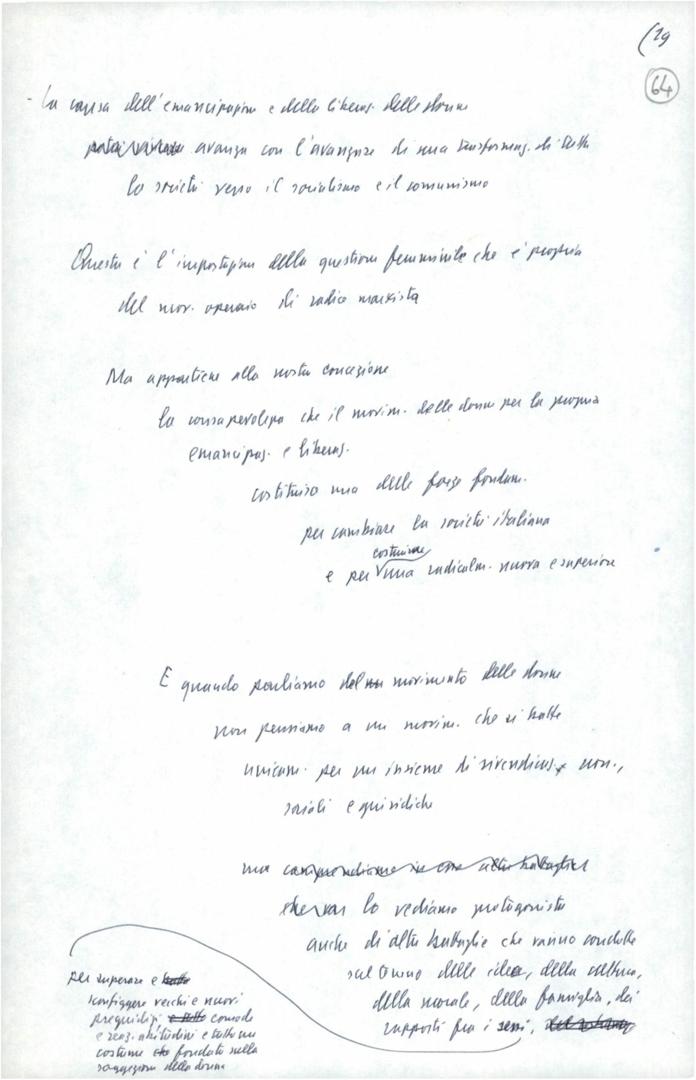 (19
64
- La causa dell'emancipazione e della liberaz. delle donne
avanza con l'avanzare di una trasformaz. di tutta
la società verso il socialismo e il comunismo
Questa è l'impostazione della questione femminile che è propria
del mov. operaio di radice marxista
Ma appartiene alla nostra concezione
la consapevolezza che il movim. delle donne per la propria
emancipaz. e liberaz.
costituisce una delle forze fondam.
per cambiare la società italiana
costruirne
e per una radicalm. nuova e superiore
E quando parliamo del movimento delle donne
non pensiamo a un movim. che si batte
unicam. per un insieme di rivendicaz. econ.,
sociali e giuridiche
ma comprendiamo in esso altre battaglie
che lo vediamo protagonista
anche di altre battaglie che vanno condotte
sul terreno delle idee, della cultura,
della morale, della famiglia, dei
rapporti fra i sessi,
per superare e
sconfiggere vecchi e nuovi
pregiudizi comode
e abitudini e tutto un
costume fondato sulla
soggezione della donna